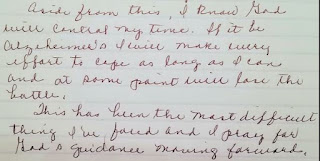 Aside from this, I know God
will control my time. If it be
Alzheimer's I will make every
effort to cope as long as I can
and at some point will lose the
battle.
This has been the most difficult
thing I've faced and I pray for
God's guidance moving forward.